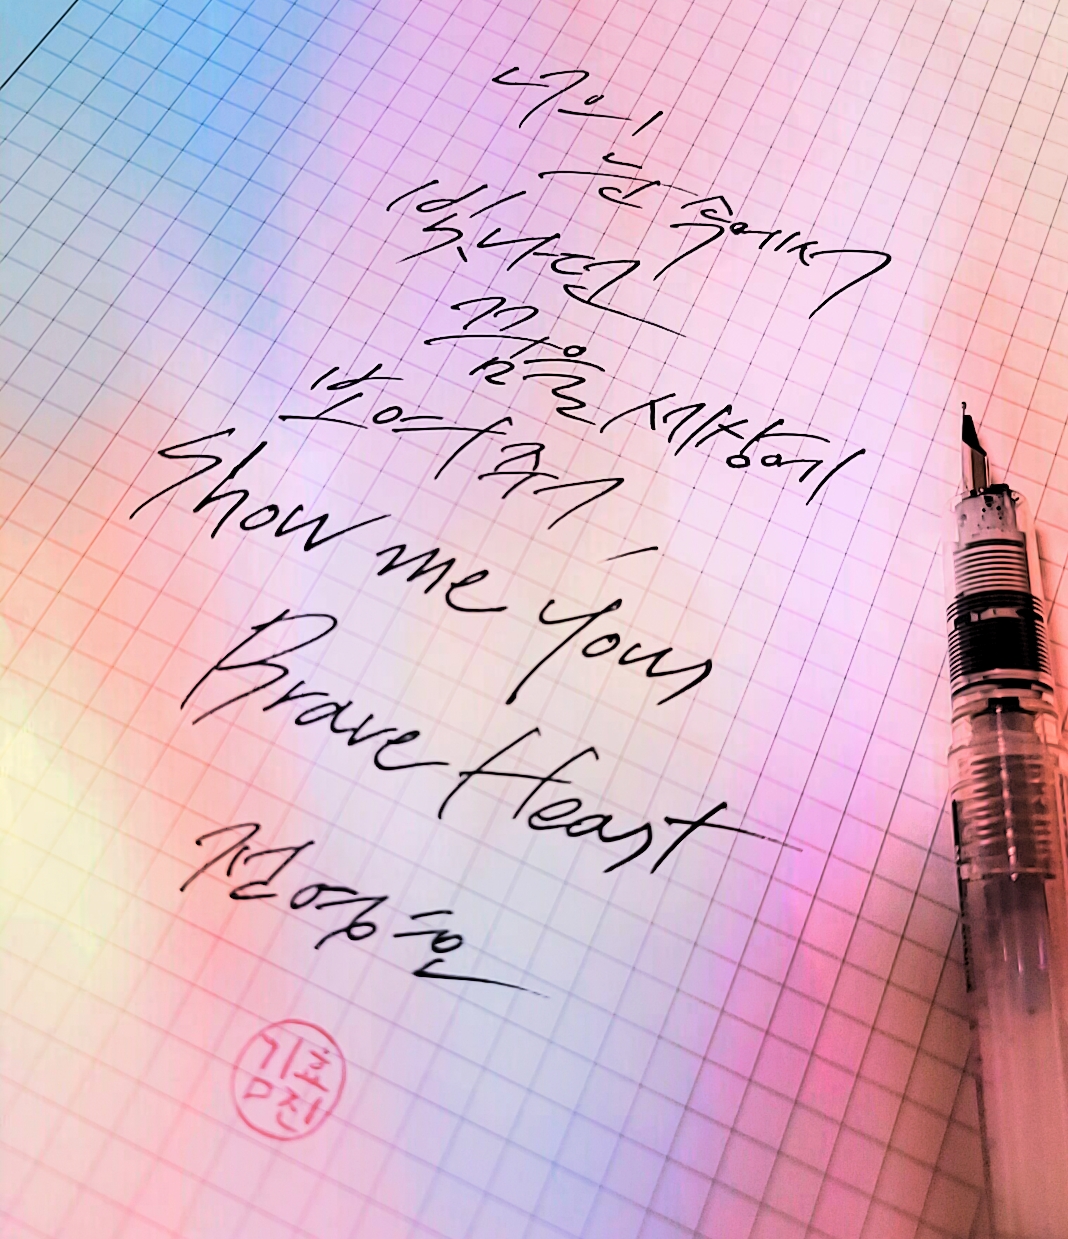 너의
눈 속에서
빛나던
꿈을 세상에
보여줘
Show me your
Brave Heart
전영호